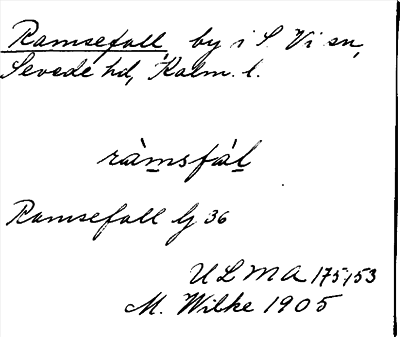 Ramsefall, by i S. Vi sn,
Sevede hd, Kalm. l.
ràmsfál
Ramsefall Gj 36
ULMA 175,153
M. Wilke 1905